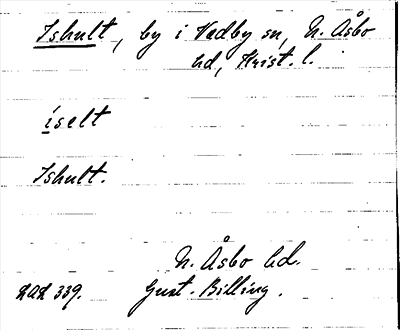 Ishult, by i Vedby sn, N. Åsbo
hd, Krist. l.
íselt
Ishult.
N. Åsbo hd.
LAL 339. Gust. Billing.